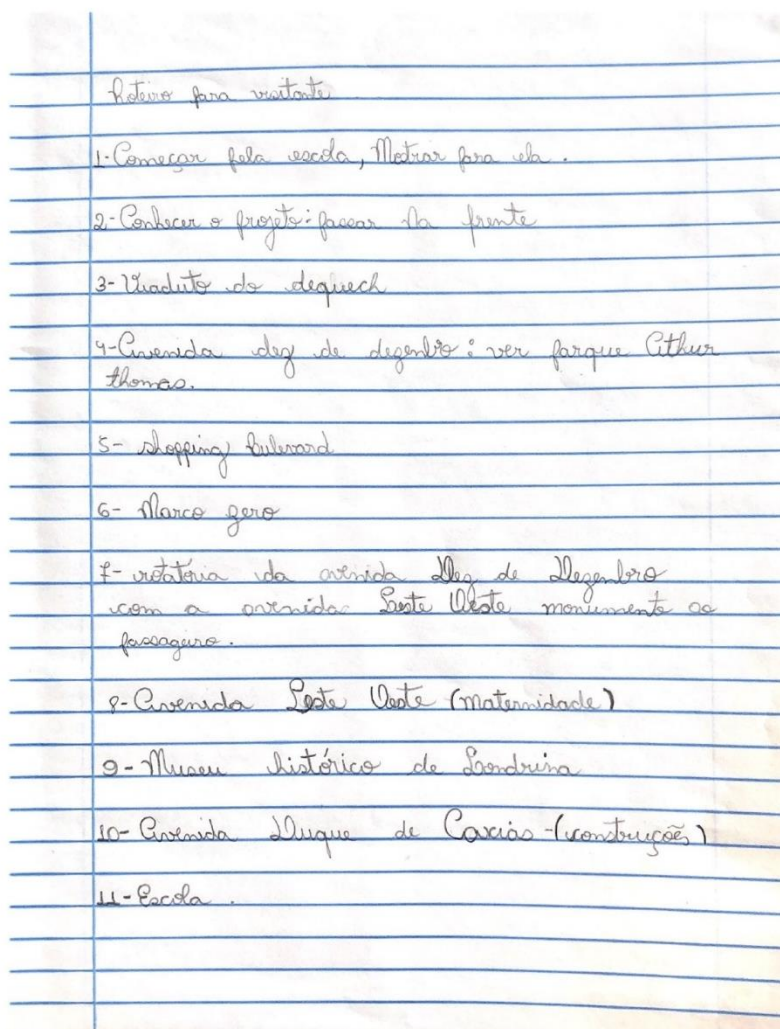 Roteiro para visitante
1-Começar pela escola, Mostrar para ela.
2-Conhecer o projeto: passar na frente
3-Viaduto do dequech
4-Avenida dez de dezenbro: ver parque Athur
thomas.
5- shopping bulevard
6- Marco zero
7- rotatória da avenida Dez de Dezenbro
com a avenida Leste Oeste monumento ao
passageiro.
8-Avenida Leste Oeste (maternidade)
9-Museu histórico de Londrina
10-Avenida Duque de Caxias-(construções)
11-Escola.